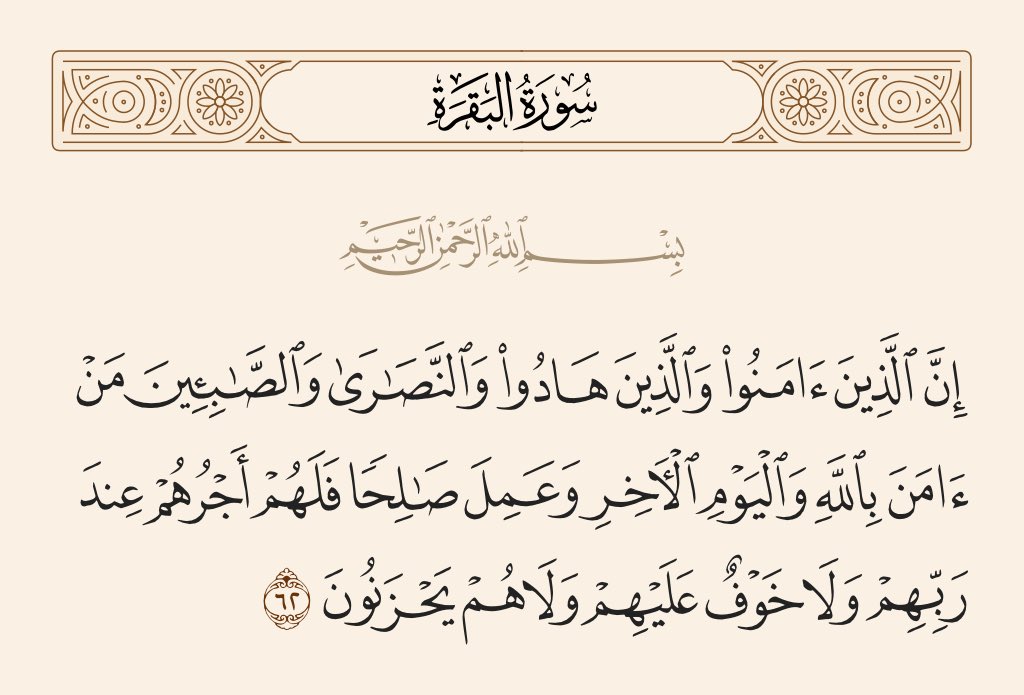 سُورَةُ البَقَرَةِ
بِسْمِ ٱللَّهِ ٱلرَّحْمَٰنِ ٱلرَّحِيمِ
إِنَّ ٱلَّذِينَ ءَامَنُوا۟ وَٱلَّذِينَ هَادُوا۟ وَٱلنَّصَـٰرَىٰ وَٱلصَّـٰبِـِٔينَ مَنْ
ءَامَنَ بِٱللَّهِ وَٱلْيَوْمِ ٱلْـَٔاخِرِ وَعَمِلَ صَـٰلِحًا فَلَهُمْ أَجْرُهُمْ عِندَ
رَبِّهِمْ وَلَا خَوْفٌ عَلَيْهِمْ وَلَا هُمْ يَحْزَنُونَ ٦٢